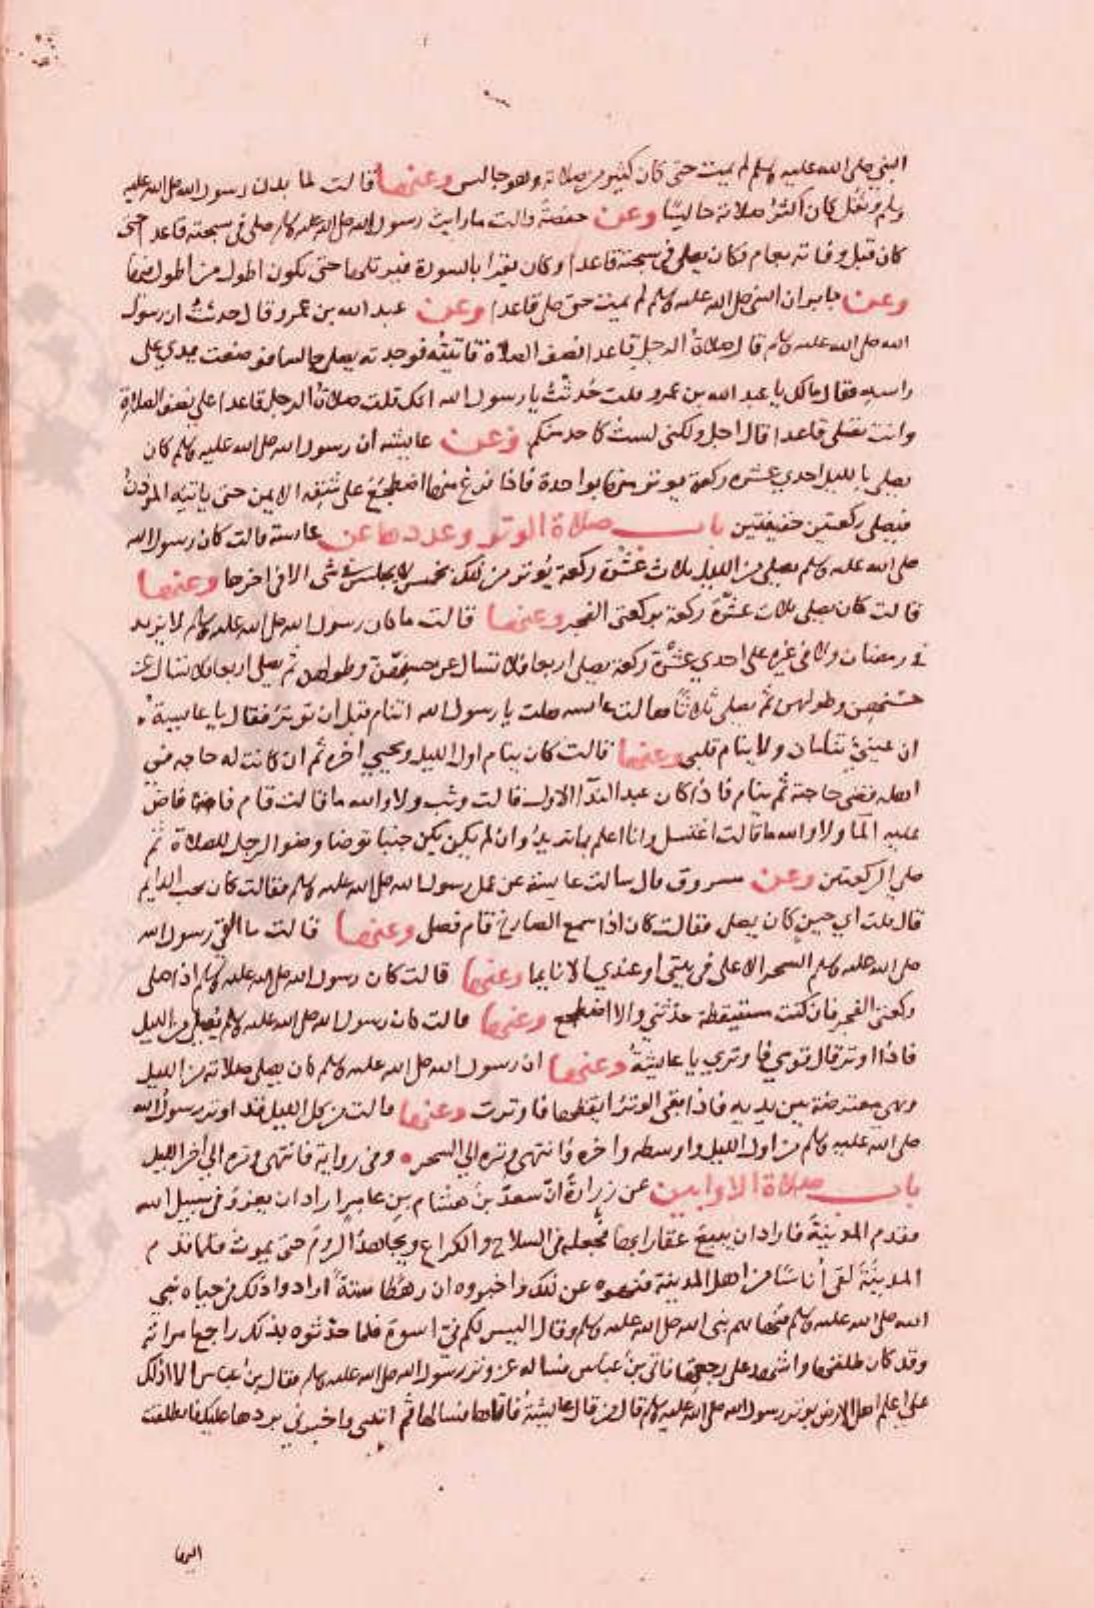 النبي صلى الله عليه وسلم لم يمت حتى كان كثير من صلاته وهو جالس وعنها قالت لما بدن رسول الله صلى الله عليه
وسلم وثقل كان اكثر صلاته جالسًا وعن حفصة قالت ما رايت رسول الله صلى الله عليه وسلم صلى في سبحته قاعدا حتى
كان قبل وفاته بعام فكان يصلي في سبحته قاعدا وكان يقرا بالسورة فيرتلها حتى تكون اطول من اطول منها
وعن جابر ان النبي صلى الله عليه وسلم لم يمت حتى صلى قاعدا وعن عبد الله بن عمرو قال حدثتُ ان رسول
الله صلى الله عليه وسلم قال صلاة الرجل قاعدا نصف الصلاة فاتيته فوجدته يصلي جالسا فوضعت يدي على
راسه فقال مالك يا عبد الله بن عمرو قلت حُدثتُ يا رسول الله انك قلت صلاة الرجل قاعدا على نصف الصلاة
وانت تصلي قاعدا قال اجل ولكني لست كاحد منكم وعن عايشه ان رسول الله صلى الله عليه وسلم كان
يصلي بالليل احدي عشره ركعة يوتر منها بواحدة فاذا فرغ منها اضطجع على شقه الايمن حتى ياتيه الموذن
فيصلي ركعتين خفيفتين باب صلاة الوتر وعددها عن عايشة قالت كان رسول الله
صلى الله عليه وسلم يصلي من الليل ثلاث عشرة ركعة يُوتر من ذلك بخمس لا يجلس في شي الا في اخرها وعنها
قالت كان يصلي ثلاث عشرة ركعة بركعتي الفجر وعنها قالت ما كان رسول الله صلى الله عليه وسلم لا يزيد
في رمضان ولا في غيره على احدي عشرة ركعة يصلي اربعا فلا تسال عن حسنهن وطولهن ثم يصلي اربعا فلا تسال عن
حسنهن وطولهن ثم يصلي ثلاثًا فقالت عايشه قلت يا رسول الله اتنام قبل ان توتر فقال يا عايشة
ان عينيَّ تنامان ولا ينام قلبي وعنها قالت كان ينام اول الليل ويحيي اخره ثم ان كانت له حاجه من
اهله قضى حاجته ثم ينام فاذا كان عند النداء الاول قالت وثب ولا والله ما قالت قام فافاض
عليه الما ولا والله ما قالت اغتسل وانا اعلم بما تريد وان لم يكن جنبا توضا وضو الرجل للصلاة ثم
صلى الركعتين وعن مسروق قال سالت عايشة عن عمل رسول الله صلى الله عليه وسلم فقالت كان يحب الدايم
قال قلت اي حين كان يصلي فقالت كان اذا سمع الصارخ قام فصلى وعنها قالت ما الفى رسول الله
صلى الله عليه وسلم السحر الاعلى في بيتي او عندي الا نايما وعنها قالت كان رسول الله صلى الله عليه وسلم اذا صلى
ركعتي الفجر فان كنت مستيقظة حدثني والا اضطجع وعنها قالت كان رسول الله صلى الله عليه وسلم يصلي من الليل
فاذا اوتر قال قومي فاوتري يا عايشةُ وعنها ان رسول الله صلى الله عليه وسلم كان يصلي صلاته من الليل
وهي معترضة بين يديه فاذا بقى الوتر ايقظها فاوترت وعنها قالت من كل الليل قد اوتر رسول الله
صلى الله عليه وسلم من اول الليل واوسطه واخره فانتهى وتره الي السحر وفي رواية فانتهى وتره الي اخر الليل
باب صلاة الاوابين عن زرارة انّ سعد بن هشام بن عامر اراد ان يغزو في سبيل الله
فقدم المدينة فاراد ان يبيع عقارا بها فيجعله في السلاح والكراع ويجاهد الروم حتى يموت فلما قدم
المدينة لقى أناسًا من اهل المدينة فنهوه عن ذلك واخبروه ان رهطا ستةً ارادوا ذلك في حياه نبي
الله صلى الله عليه وسلم فنهاهم نبي الله صلى الله عليه وسلم وقال اليس لكم فيّ اسوة فلما حدثوه بذلك راجع امراته
وقد كان طلقها واشهد على رجعتها فاتى بن عباس فساله عن وتر رسول الله صلى الله عليه وسلم فقال بن عباس الا ادلك
على اعلم اهل الارض بوتر رسول الله صلى الله عليه وسلم قال من قال عايشة فاتها فسالها ثم ائتني واخبرني بردها عليك فانطلقت
اليها